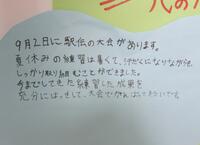 9月2日に駅伝の大会があります。
夏休みの練習は暑くて、汗だくになりながら、
しっかり取り組むことができました。
今までしてきた練習した成果を
充分にはっきして、大会でがんばってきたいです